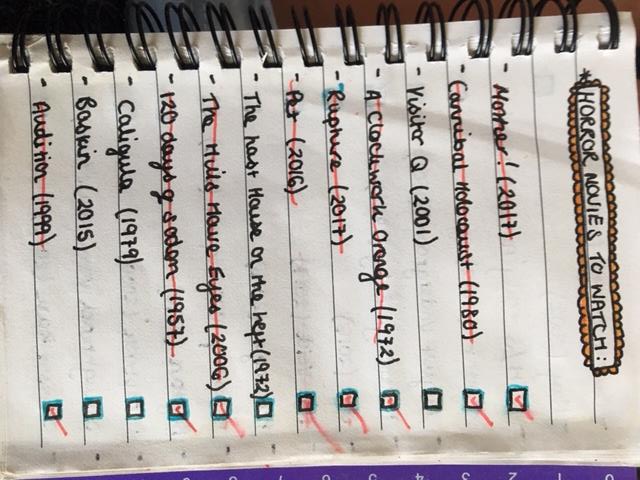 * HORROR MOVIES TO WATCH:
- Mother! (2017)
- Cannibal Holocaust (1980)
- Visitor Q (2001)
- A Clockwork Orange (1972)
- Rupture (2017)
- Pet (2016)
- The Last House on the Left (1972)
- The Hills Have Eyes (2006)
- 120 days of sodom (1957)
- Caligula (1979)
- Baskin (2015)
- Audition (1999)
0 1 2 3 4 5 6 7 8 9